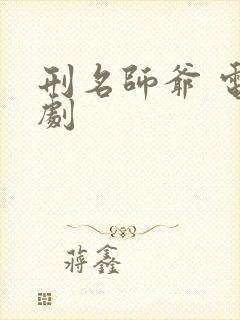 刑名師爺 電
劇
蔣鑫